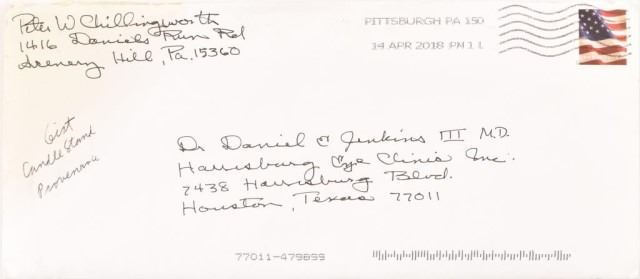 Peter W Chillingworth
1416 Daniels Run Rd
Scenery Hill, Pa. 15360
PITTSBURGH PA 150
14 APR 2018 PM 1 L
Gist
Candle Stand
Provenance
Dr Daniel E Jenkins III M.D.
Harrisburg Eye Clinic Inc.
7438 Harrisburg Blvd.
Houston, Texas 77011
77011-479899